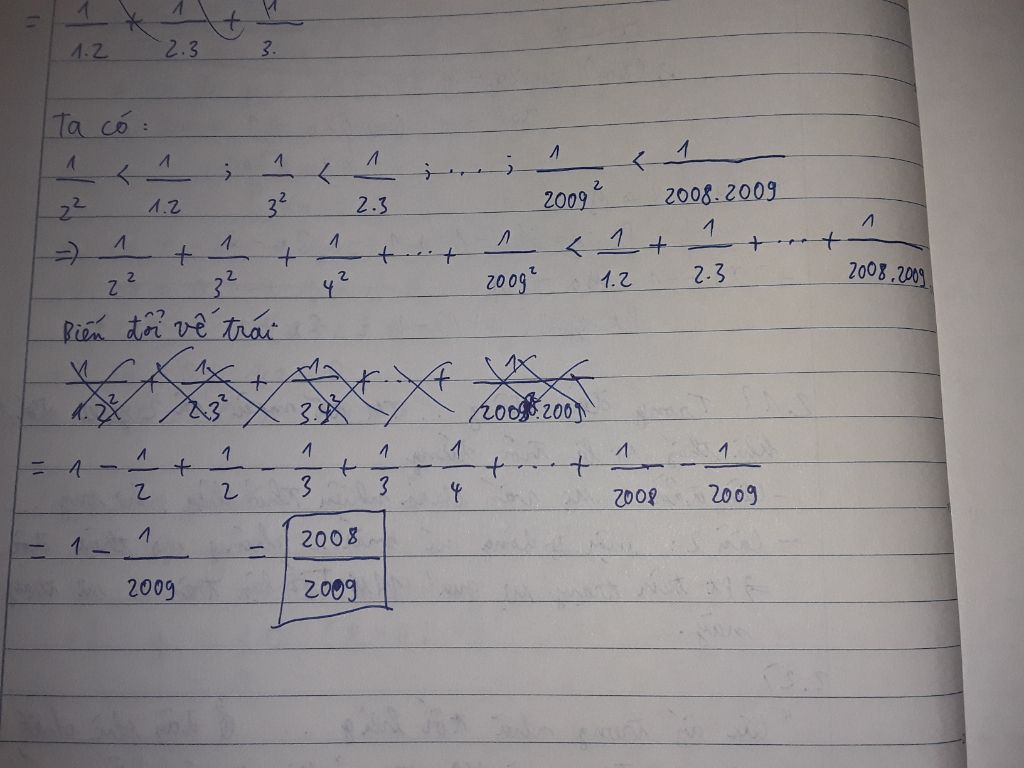 = 1/1.2 + 1/2.3 + 1/3.
Ta có:
1/2² < 1/1.2 ; 1/3² < 1/2.3 ; ... ; 1/2009² < 1/2008.2009
=> 1/2² + 1/3² + 1/4² + ... + 1/2009² < 1/1.2 + 1/2.3 + ... + 1/2008.2009
Biến đổi vế trái
1/1.2² + 1/2.3² + 1/3.4² + ... + 1/2008.2009
= 1 - 1/2 + 1/2 - 1/3 + 1/3 - 1/4 + ... + 1/2008 - 1/2009
= 1 - 1/2009 = 2008/2009